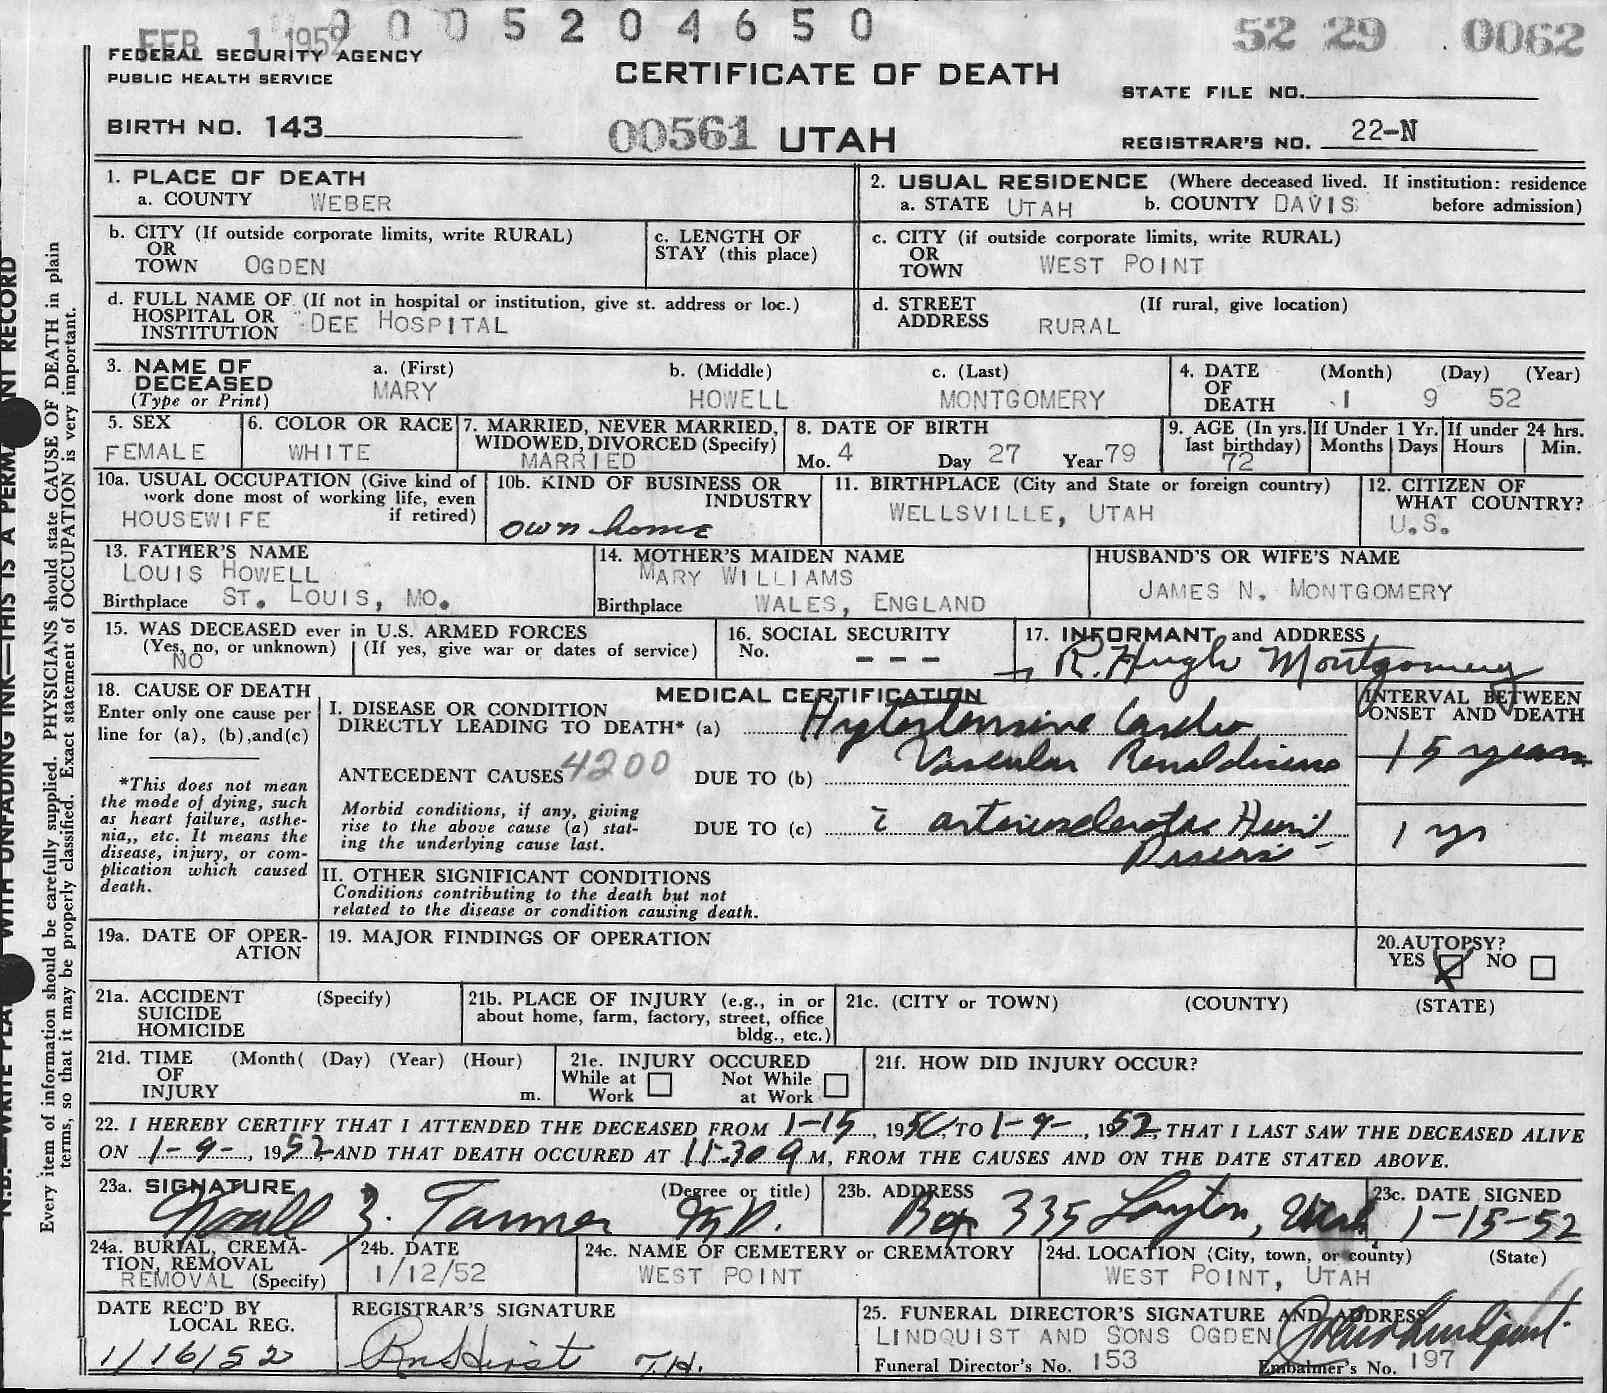 FEB 1 1952 0005204650 52 29 0062
FEDERAL SECURITY AGENCY
PUBLIC HEALTH SERVICE
CERTIFICATE OF DEATH
STATE FILE NO.
BIRTH NO. 143 00561 UTAH
REGISTRAR'S NO. 22-N
1. PLACE OF DEATH
a. COUNTY WEBER
2. USUAL RESIDENCE (Where deceased lived. If institution: residence
a. STATE UTAH b. COUNTY DAVIS before admission)
b. CITY (If outside corporate limits, write RURAL)
OR
TOWN OGDEN
c. LENGTH OF
STAY (this place)
c. CITY (if outside corporate limits, write RURAL)
OR
TOWN WEST POINT
d. FULL NAME OF (If not in hospital or institution, give st. address or loc.)
HOSPITAL OR
INSTITUTION DEE HOSPITAL
d. STREET (If rural, give location)
ADDRESS RURAL
3. NAME OF
DECEASED
(Type or Print)
a. (First)
MARY
b. (Middle)
HOWELL
c. (Last)
MONTGOMERY
4. DATE
OF
DEATH
(Month) (Day) (Year)
1 9 52
5. SEX
FEMALE
6. COLOR OR RACE
WHITE
7. MARRIED, NEVER MARRIED,
WIDOWED, DIVORCED (Specify)
MARRIED
8. DATE OF BIRTH
Mo. 4 Day 27 Year 79
9. AGE (In yrs.
last birthday)
72
If Under 1 Yr.
Months Days
If under 24 hrs.
Hours Min.
10a. USUAL OCCUPATION (Give kind of
work done most of working life, even
if retired)
HOUSEWIFE
10b. KIND OF BUSINESS OR
INDUSTRY
own home
11. BIRTHPLACE (City and State or foreign country)
WELLSVILLE, UTAH
12. CITIZEN OF
WHAT COUNTRY?
U.S.
13. FATHER'S NAME
LOUIS HOWELL
Birthplace ST. LOUIS, MO.
14. MOTHER'S MAIDEN NAME
MARY WILLIAMS
Birthplace WALES, ENGLAND
HUSBAND'S OR WIFE'S NAME
JAMES N. MONTGOMERY
15. WAS DECEASED ever in U.S. ARMED FORCES
(Yes, no, or unknown) (If yes, give war or dates of service)
NO
16. SOCIAL SECURITY
No. ---
17. INFORMANT and ADDRESS
R. Hugh Montgomery
18. CAUSE OF DEATH
Enter only one cause per
line for (a), (b),and(c)
*This does not mean
the mode of dying, such
as heart failure, asthe-
nia,, etc. It means the
disease, injury, or com-
plication which caused
death.
MEDICAL CERTIFICATION
I. DISEASE OR CONDITION
DIRECTLY LEADING TO DEATH* (a) Hypertensive Cardio
Vascular Renal disease
ANTECEDENT CAUSES 4200 DUE TO (b)
Morbid conditions, if any, giving
rise to the above cause (a) stat-
ing the underlying cause last.
DUE TO (c) c̄ arteriosclerotic Heart
Disease
INTERVAL BETWEEN
ONSET AND DEATH
15 years
1 yr
II. OTHER SIGNIFICANT CONDITIONS
Conditions contributing to the death but not
related to the disease or condition causing death.
19a. DATE OF OPER-
ATION
19. MAJOR FINDINGS OF OPERATION
20. AUTOPSY?
YES X NO
21a. ACCIDENT (Specify)
SUICIDE
HOMICIDE
21b. PLACE OF INJURY (e.g., in or
about home, farm, factory, street, office
bldg., etc.)
21c. (CITY or TOWN) (COUNTY) (STATE)
21d. TIME (Month( (Day) (Year) (Hour)
OF
INJURY m.
21e. INJURY OCCURED
While at Work Not While at Work
21f. HOW DID INJURY OCCUR?
22. I HEREBY CERTIFY THAT I ATTENDED THE DECEASED FROM 1-15, 1950, TO 1-9-, 1952, THAT I LAST SAW THE DECEASED ALIVE
ON 1-9-, 1952, AND THAT DEATH OCCURED AT 11:30 a M, FROM THE CAUSES AND ON THE DATE STATED ABOVE.
23a. SIGNATURE (Degree or title)
Noall Z. Tanner M.D.
23b. ADDRESS
Box 335 Layton, Utah
23c. DATE SIGNED
1-15-52
24a. BURIAL, CREMA-
TION, REMOVAL
REMOVAL (Specify)
24b. DATE
1/12/52
24c. NAME OF CEMETERY or CREMATORY
WEST POINT
24d. LOCATION (City, town, or county) (State)
WEST POINT, UTAH
DATE REC'D BY
LOCAL REG.
1/16/52
REGISTRAR'S SIGNATURE
T.H.
25. FUNERAL DIRECTOR'S SIGNATURE AND ADDRESS
LINDQUIST AND SONS OGDEN
Funeral Director's No. 153 Embalmer's No. 197
WITH UNFADING INK—THIS IS A
Every item of information should be carefully supplied. PHYSICIANS should state CAUSE OF DEATH in plain
terms, so that it may be properly classified. Exact statement of OCCUPATION is very important.